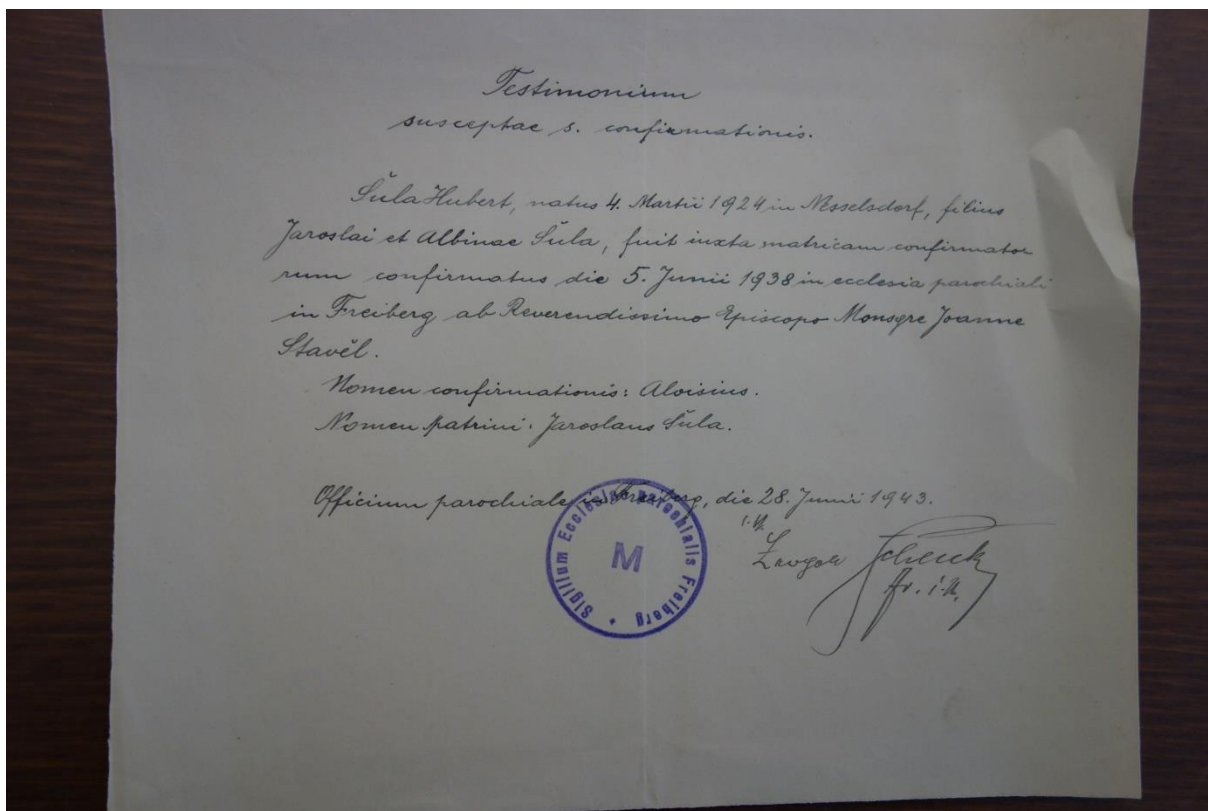 Testimonium
susceptae s. confirmationis.
Šula Hubert, natus 4. Martii 1924 in Nesselsdorf, filius
Jaroslai et Albinae Šula, fuit iuxta matricam confirmator
rum confirmatus die 5. Junii 1938 in ecclesia parochiali
in Freiberg ab Reverendissimo Episcopo Monsgre Joanne
Stavěl.
Nomen confirmationis: Aloisius.
Nomen patrini: Jaroslaus Šula.
Officium parochiale in Freiberg, die 28. Junii 1943.
Sigilium Ecclesiae parochialis Freiberg
M